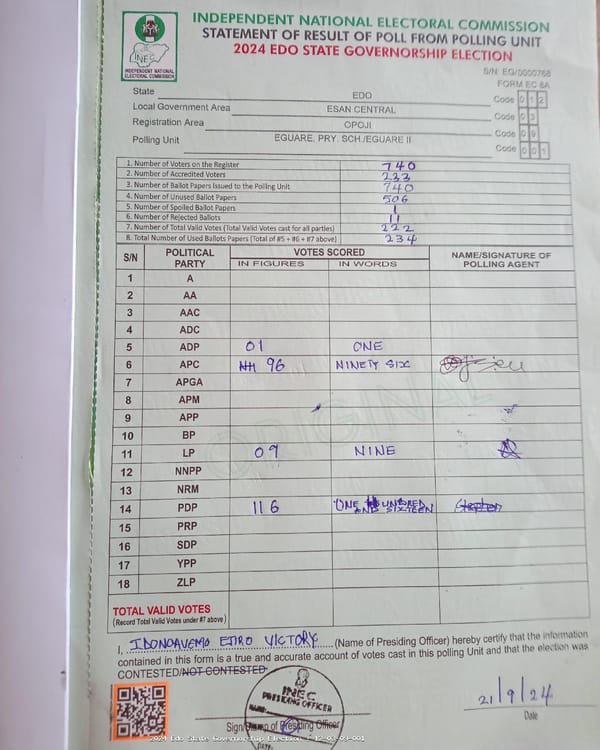 INDEPENDENT NATIONAL ELECTORAL COMMISSION
STATEMENT OF RESULT OF POLL FROM POLLING UNIT
2024 EDO STATE GOVERNORSHIP ELECTION
INEC
INDEPENDENT NATIONAL
ELECTORAL COMMISSION
S/N EG/0000768
FORM EC 8A
State EDO Code 0 1 2
Local Government Area ESAN CENTRAL Code 0 3
Registration Area OPOJI Code 0 9
Polling Unit EGUARE, PRY. SCH./EGUARE II Code 0 0 1
1. Number of Voters on the Register 740
2. Number of Accredited Voters 233
3. Number of Ballot Papers Issued to the Polling Unit 740
4. Number of Unused Ballot Papers 506
5. Number of Spoiled Ballot Papers 1
6. Number of Rejected Ballots 11
7. Number of Total Valid Votes (Total Valid Votes cast for all parties) 222
8. Total Number of Used Ballots Papers (Total of #5 + #6 + #7 above) 234
S/N POLITICAL PARTY VOTES SCORED NAME/SIGNATURE OF POLLING AGENT
IN FIGURES IN WORDS
1 A
2 AA
3 AAC
4 ADC
5 ADP 01 ONE
6 APC 96 NINETY SIX
7 APGA
8 APM
9 APP
10 BP
11 LP 09 NINE
12 NNPP
13 NRM
14 PDP 116 ONE HUNDRED AND SIXTEEN Stephen
15 PRP
16 SDP
17 YPP
18 ZLP
ORIGINAL
TOTAL VALID VOTES
(Record Total Valid Votes under #7 above)
I, IDONOAVEMO EJIRO VICTORY (Name of Presiding Officer) hereby certify that the information
contained in this form is a true and accurate account of votes cast in this polling Unit and that the election was
CONTESTED/NOT CONTESTED.
INEC
PRESIDING OFFICER
DATE:
21/9/24
Sign of Presiding Officer
Date
2024 Edo State Governorship Election - 12-03-09-001